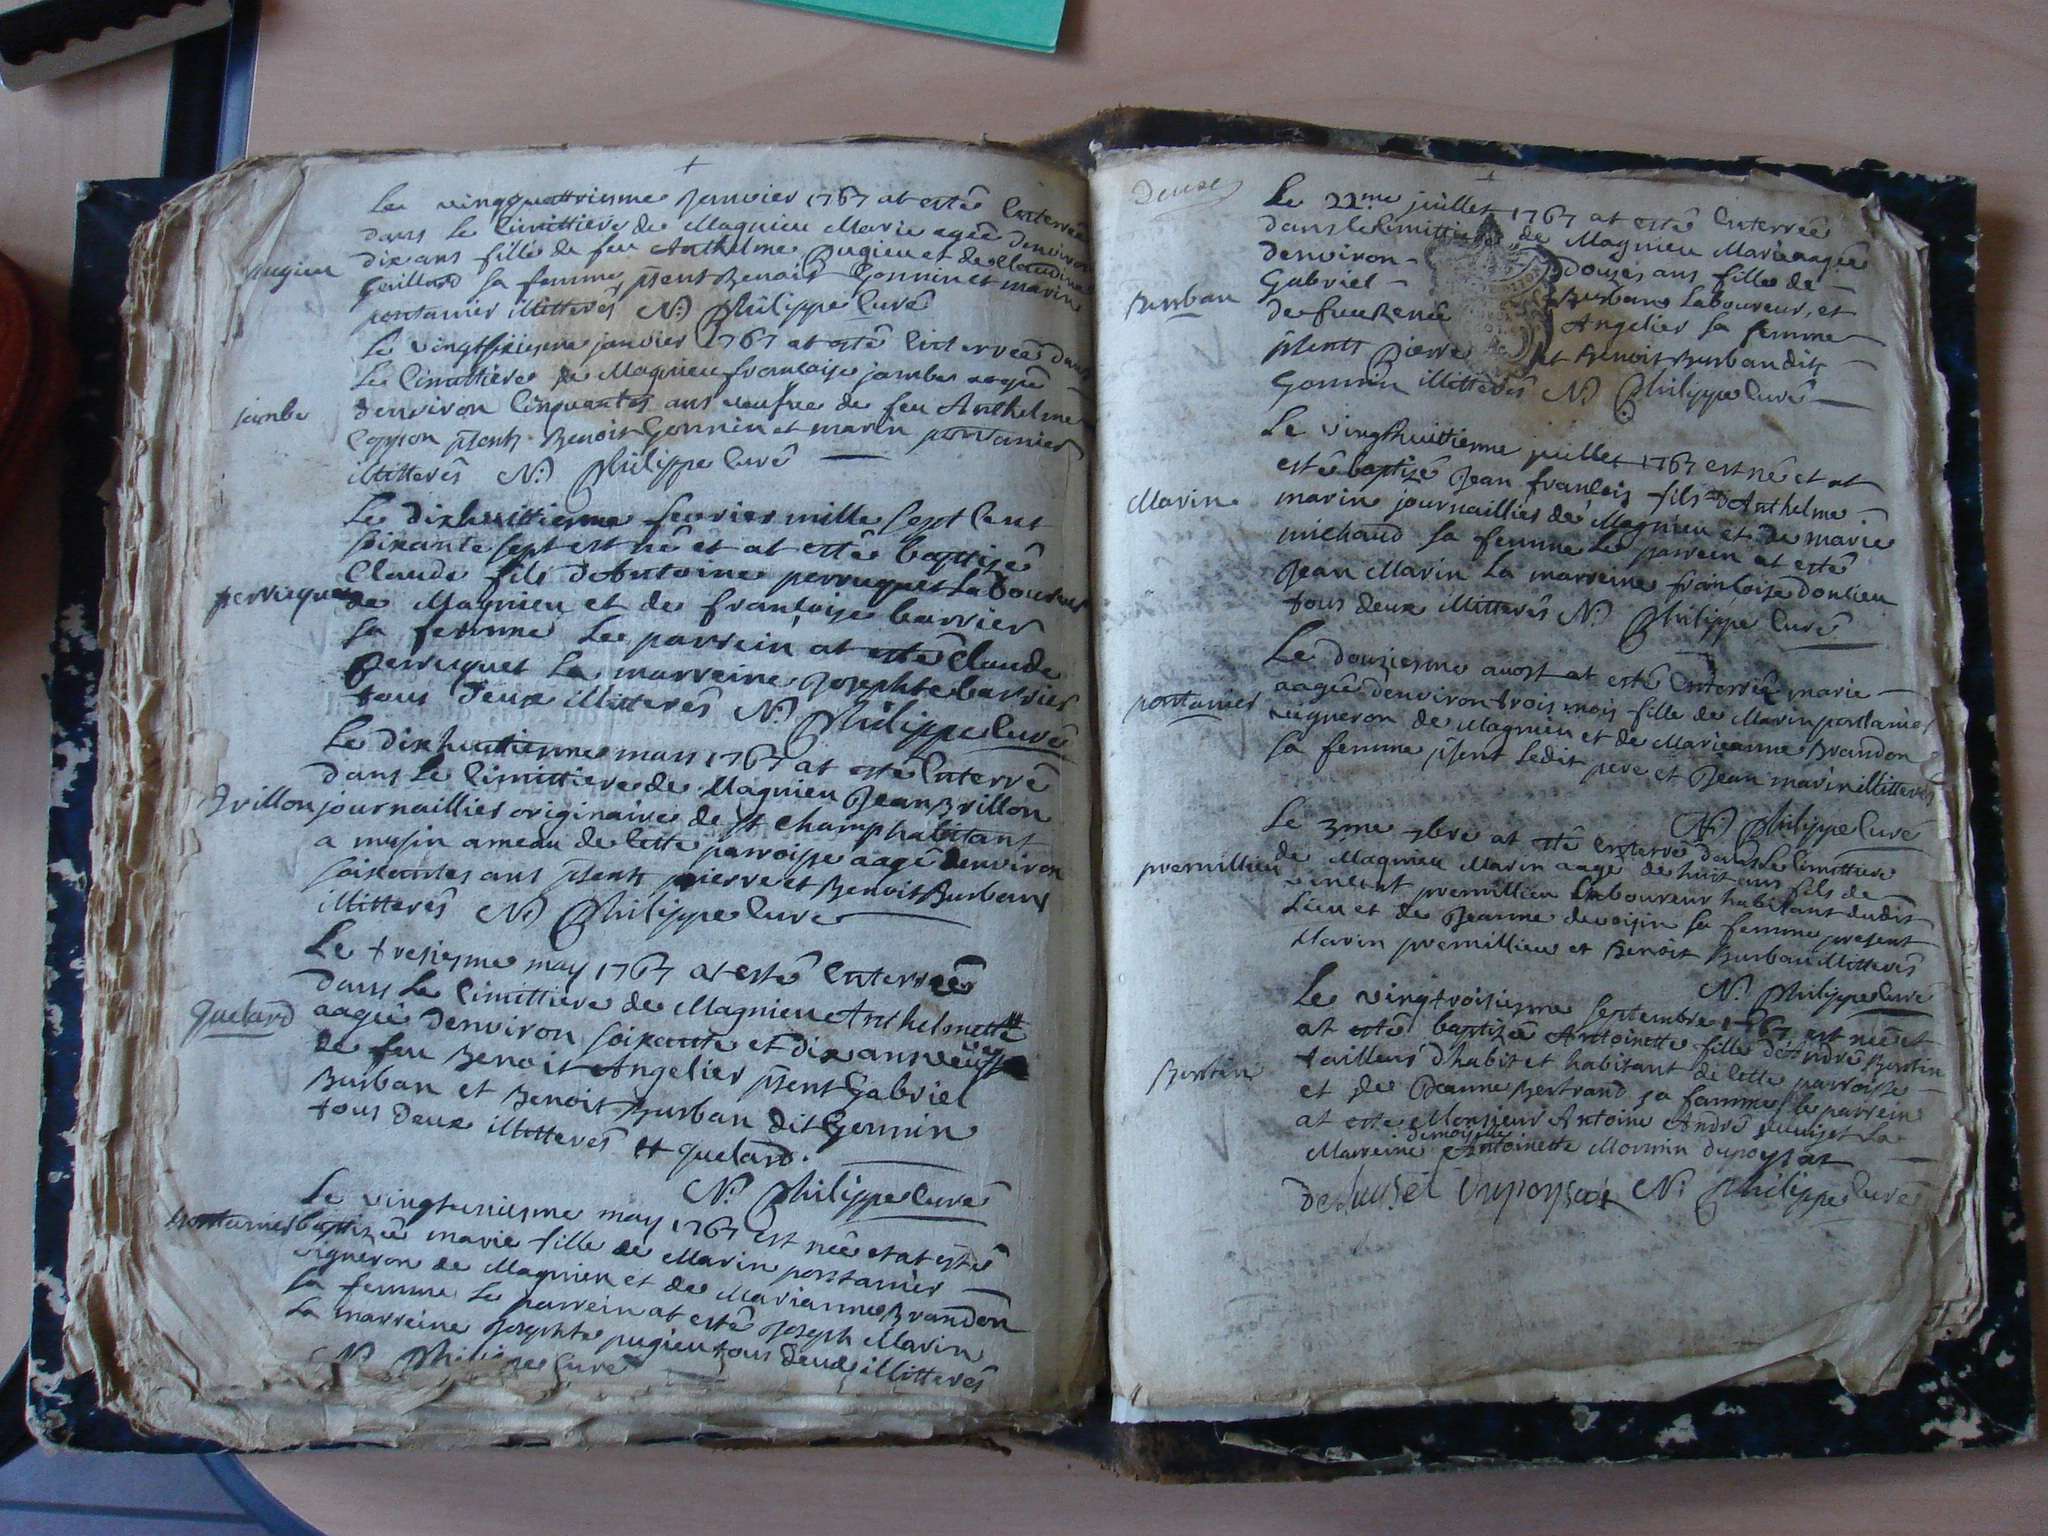 Le vingquattriesme Janvier 1767 at esté Enterrée
dans Le Cimittiere de Magnieu Marie agée denviron
dix ans fille de feu Anthelme Pugieu et de Claudine
pugieu
Gaillard sa femme pñent Benoit Gonnin et marin
pontanier illitterés N. Philippe Curé
Le vingt janvier 1767 at esté Enterrée dans
Le Cimittiere de Magnieu françoise jambe aagée
jambe
denviron Cinquantes ans veufve de feu Anthelme
pñents Benoit Gonnin et marin pontanier
illitterés N. Philippe Curé
Le dixhuittiesme fevrier mille sept Cent
soixante sept est né et at esté baptisé
Claude fils d'Antoine perruquet Laboureur
perruquet
de Magnieu et de françoise barrier
sa femme Le parrein at esté Claude
perruquet La marreine Josephte barrier
tous deux illitterés N. Philippe Curé
Le dixhuitiesme mars 1767 at esté Enterré
dans Le Cimittiere de Magnieu Jean Brillon
Brillon
journaillier originaire de St champ habitant
a musin ameau de Cette parroisse aagé denviron
soixantes ans pñents pierre et Benoit Burban
illitterés N. Philippe Curé
Le tresiesme may 1767 at esté Enterrée
dans Le Cimittiere de Magnieu Anthelmette #
Quelard
aagée denviron soixante et dix ans veufve
de feu Benoit Angelier pñent Gabriel
Burban et Benoit Burban dit Gonnin
tous deux illitterés # quelard.
N. Philippe Curé
Le vingtuniesme may 1767 est née et at esté
pontanier
baptizée marie fille de Marin pontanier
vigneron de Magnieu et de Marianne Brandon
sa femme Le parrein at esté Joseph Marin
La marreine Josephte pugieu tous deux illitterés
N. Philippe Curé
Deuxe
Le 22me juillet 1767 at esté Enterrée
dans le Cimittiere de Magnieu Marie aagée
denviron douzes ans fille de
Burban
Gabriel Burban Laboureur, et
de feu Renée Angelier sa femme
pñents Pierre et Benoit Burban dit
Gonnin illitterés N. Philippe Curé
Le vingthuitiesme juillet 1767 est né et at
esté baptizé Jean françois fils d'Anthelme
Marin
marin journaillier de Magnieu et de marie
michaud sa femme Le parrein at esté
Jean Marin La marreine françoise Donlieu
tous deux illitterés N. Philippe Curé
Le douziesme aoust at esté Enterrée marie
aagée denviron trois mois fille de Marin pontanier
pontanier
vigneron de Magnieu et de Marieanne Brandon
sa femme pñent Ledit pere et Jean marin illitterés
N. Philippe Curé
Le 3me 7bre at esté Enterré dans Le Cimittiere
premillieu
de Magnieu Marin aagé de huit ans fils de
vincent premillieu Laboureur habitant dudit
Lieu et de Jeanne devoisin sa femme present
Marin premillieu et Benoit Burban illitterés
N. Philippe Curé
Le vingtroisiesme septembre 1767 est née et
at esté baptizée Antoinette fille d'André Bertin
Bertin
tailleur d'habit et habitant de Cette parroisse
et de Jeanne Bertrand sa femme le parrein
at esté Monsieur Antoine André La
Marreine demoyselle Antoinette Monnin dupoysat
Dupoysat N. Philippe Curé